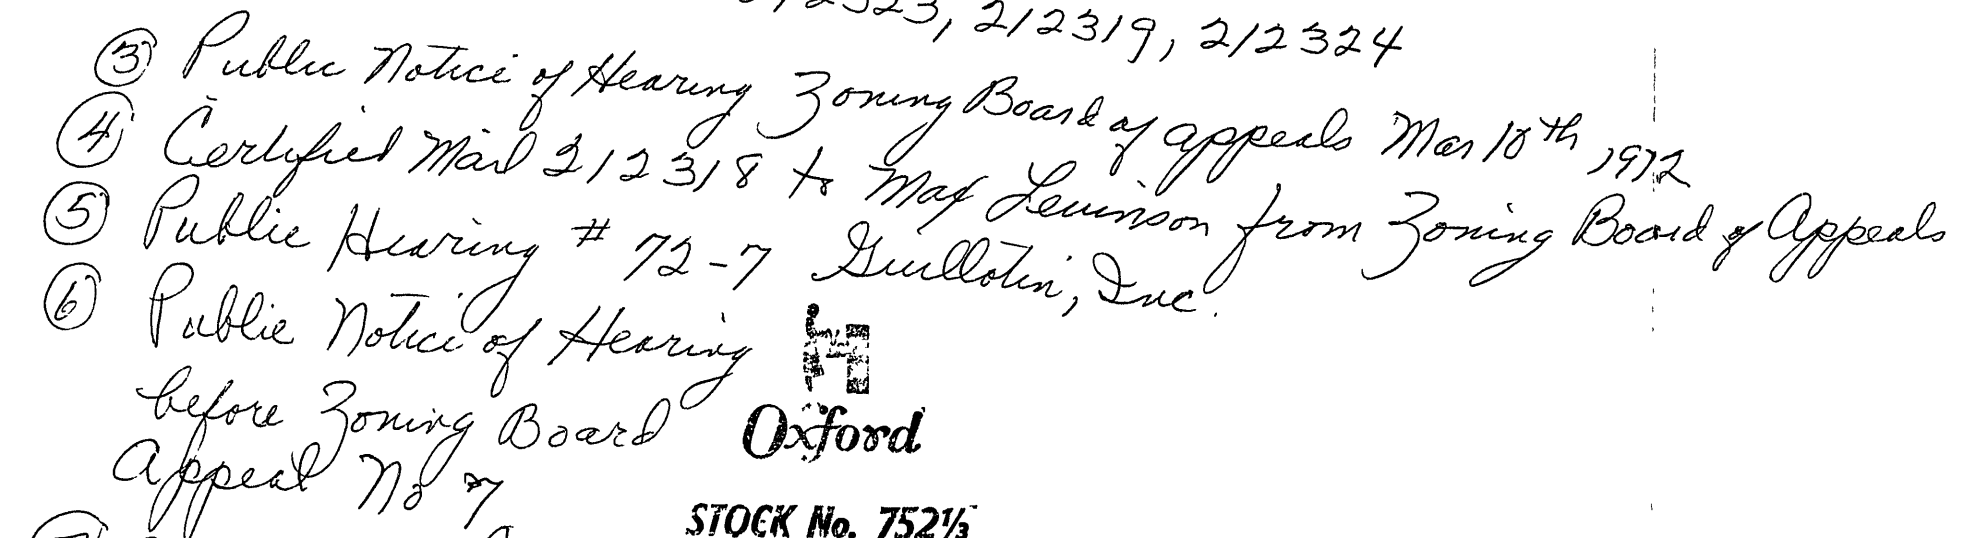 2323, 212319, 212324
③ Public Notice of Hearing Zoning Board of appeals Mar 10th, 1972
④ Certified Mail 212318 to Max Levinson from Zoning Board of Appeals
⑤ Public Hearing # 72-7 Guillotin, Inc.
⑥ Public Notice of Hearing
before Zoning Board
Appeal No 7
Oxford
STOCK No. 752⅓